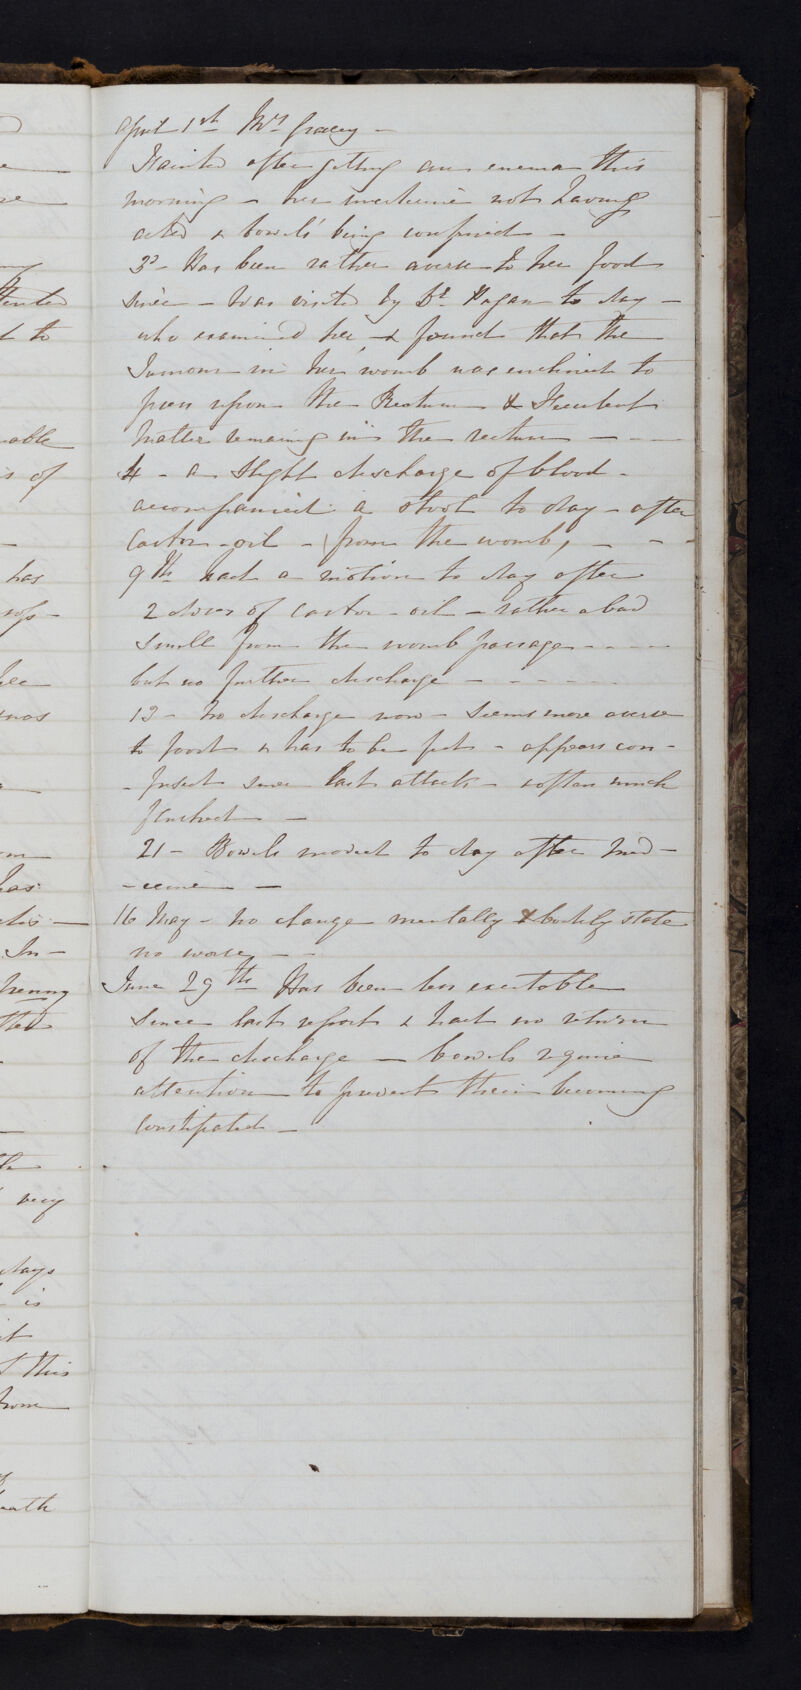 April 1st Mrs Gracey -
Fainted after getting an enema this
morning - her medicine not having
acted & bowels being confined -
3d - Has been rather averse to her food
since - Was visited by Dr Hagan to day -
who examined her & found that the
Tumour in her womb was inclined to
press upon the Rectum & Feculent
matter remaining in the rectum - - -
4 - a slight discharge of blood -
accompanied a stool to day - after
Castor-oil - from the womb, - - -
9th had a motion to day after
2 doses of castor-oil - rather a bad
smell from the womb passage - - - -
but no further discharge - - - - -
13 - No discharge now - Seems more averse
to food & has to be fed - appears con-
-fused since last attack - & often much
flushed -
21 - Bowels moved to day after Med-
-icine -
16 May - No change mentally & bodily state
no worse - -
June 29th Has been less excitable
since last report & had no return
of the discharge - bowels require
attention to prevent their becoming
Constipated -
able
is of
has
very
days
is
it
this
from